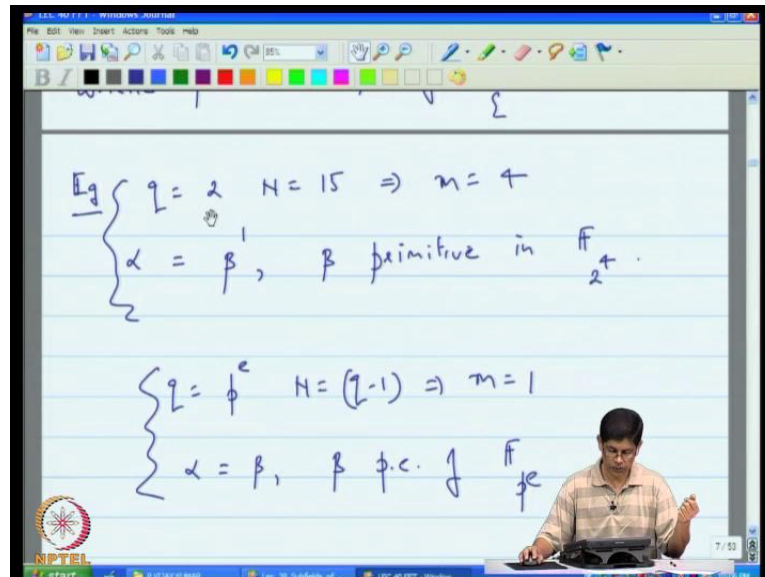 LEC 40 FFT - Windows Journal
File Edit View Insert Actions Tools Help
85%
B I
Eg { q = 2 N = 15 ⇒ m = 4
α = β^1, β primitive in F_{2^4}.
{ q = p^e N = (q-1) ⇒ m = 1
α = β, β p.e. of F_{p^e}
7 / 53
NPTEL
start